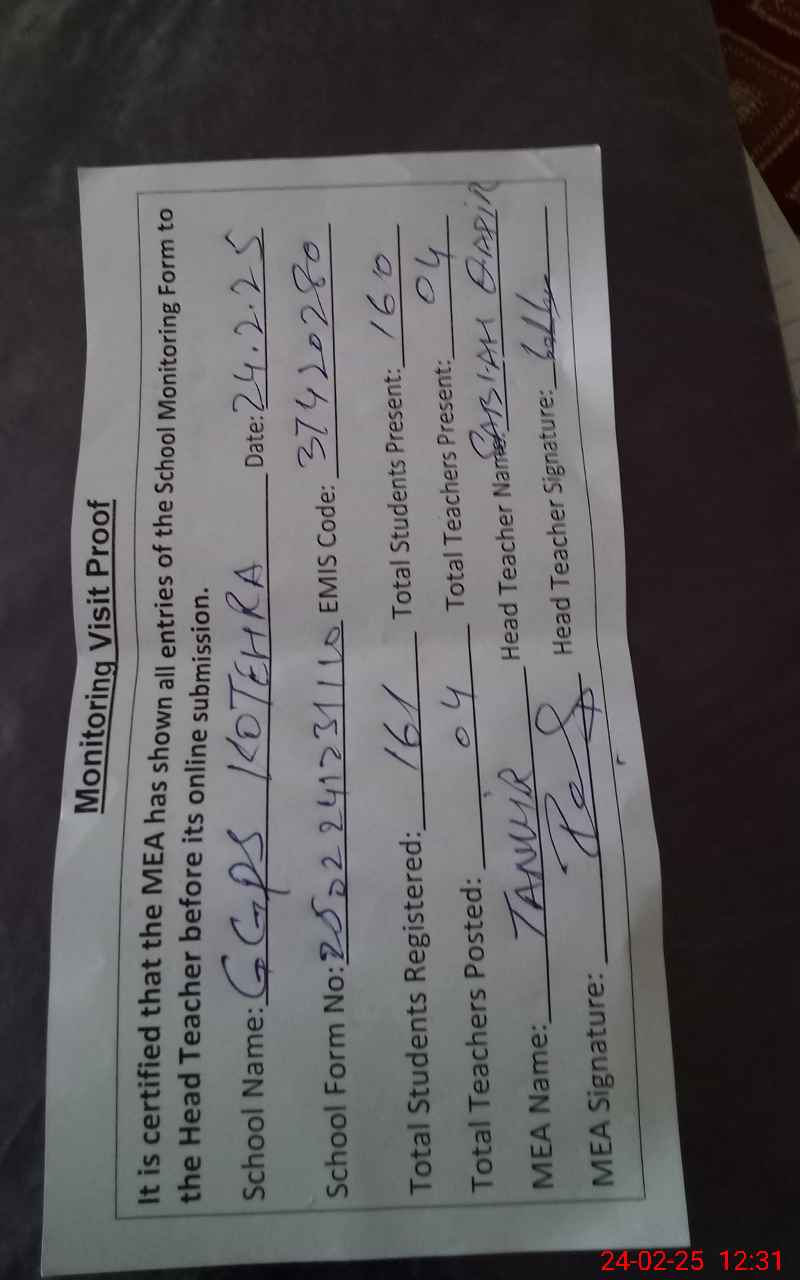 Monitoring Visit Proof
It is certified that the MEA has shown all entries of the School Monitoring Form to
the Head Teacher before its online submission.
School Name: GGPS KOTEHRA Date: 24.2.25
School Form No: EMIS Code: 37420280
Total Students Registered: 161 Total Students Present: 160
Total Teachers Posted: 04 Total Teachers Present: 04
MEA Name: TANVIR Head Teacher Name: SABIAH
MEA Signature: Head Teacher Signature:
24-02-25 12:31